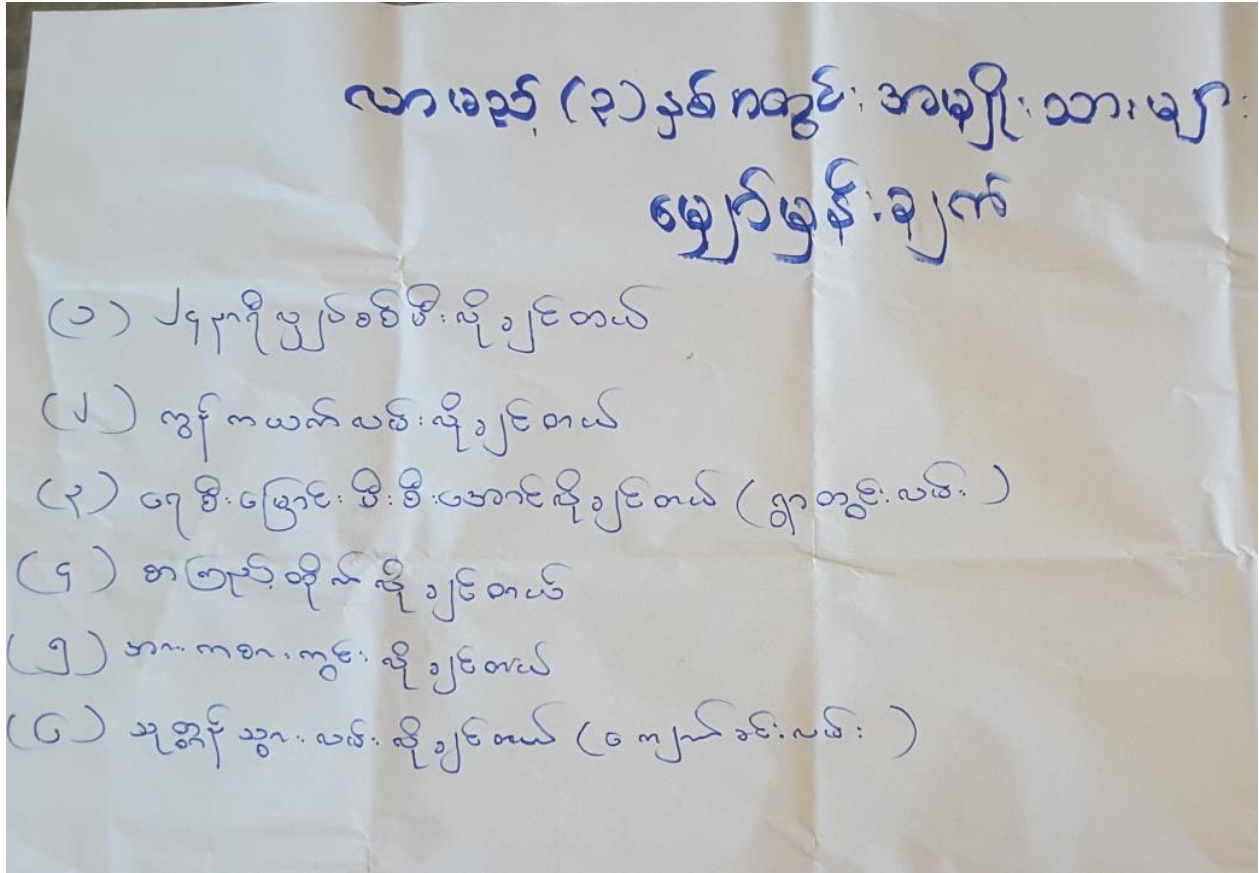 လာမည့် (၃) နှစ်အတွင်း အမျိုးသားများ
မျှော်မှန်းချက်
(၁) ၂၄ နာရီ လျှပ်စစ်မီး လိုချင်တယ်
(၂) ကွန်ကရစ်လမ်း လိုချင်တယ်
(၃) ရေစီးမြောင်း စီးအောင်လိုချင်တယ် (ရွာတွင်းလမ်း)
(၄) စာကြည့်တိုက် လိုချင်တယ်
(၅) အားကစားကွင်း လိုချင်တယ်
(၆) သုဿန်သွားလမ်း လိုချင်တယ် (ကျောက်ခင်းလမ်း)